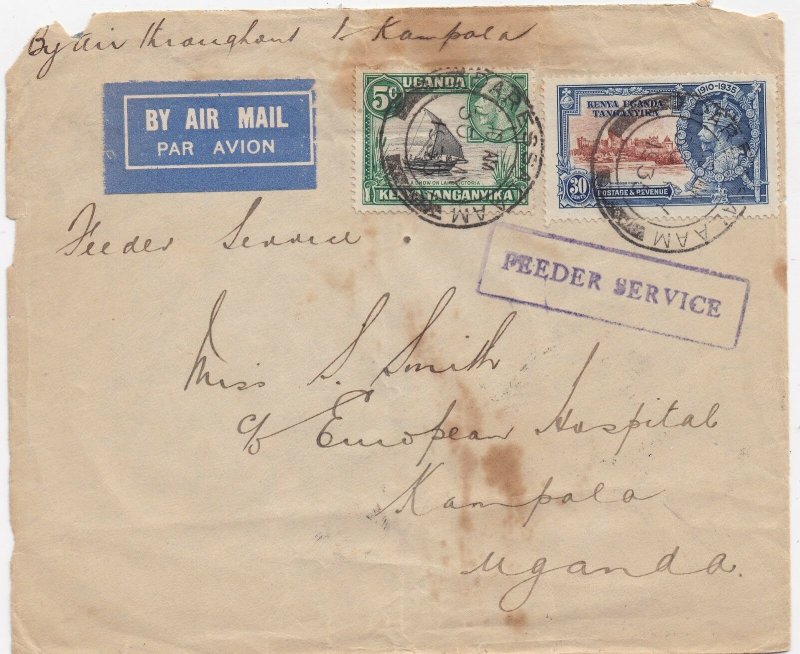 By Air throughout to Kampala
BY AIR MAIL
PAR AVION
5c
UGANDA
A DHOW ON LAKE VICTORIA
KENYA TANGANYIKA
1910-1935
KENYA UGANDA
TANGANYIKA
30
CENTS
POSTAGE & REVENUE
DAR-ES-SALAAM
SALAAM
Feeder Service.
FEEDER SERVICE
Miss S. Smith
c/o European Hospital
Kampala
Uganda.